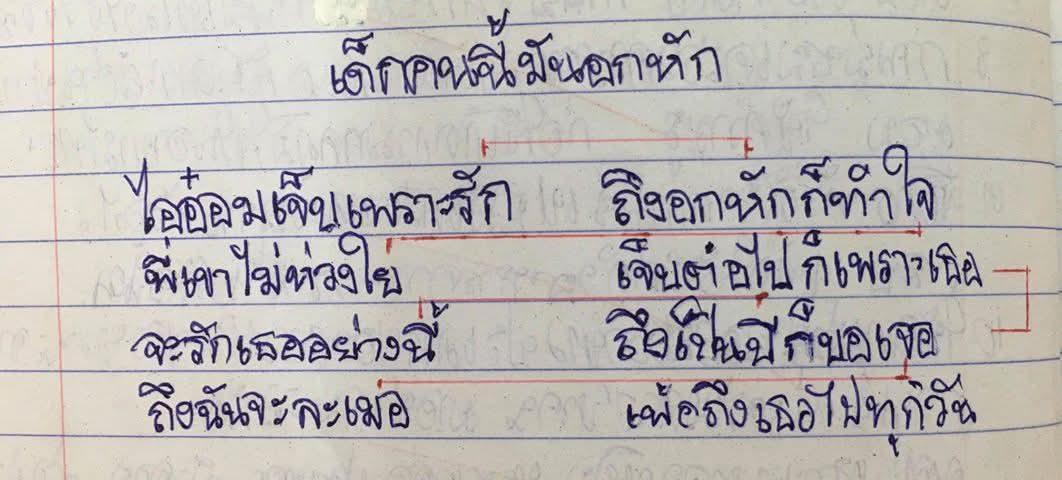 เด็กคนนี้มันอกหัก
ไอ๋ออมเจ็บเพราะรัก ถึงอกหักก็ทำใจ
ที่เขาไม่ห่วงใย เจ็บต่อไปก็เพราะเธอ
จะรักเธออย่างนี้ ถึงเป็นปีก็บอเจอ
ถึงฉันจะละเมอ เพ้อถึงเธอไปทุกวัน